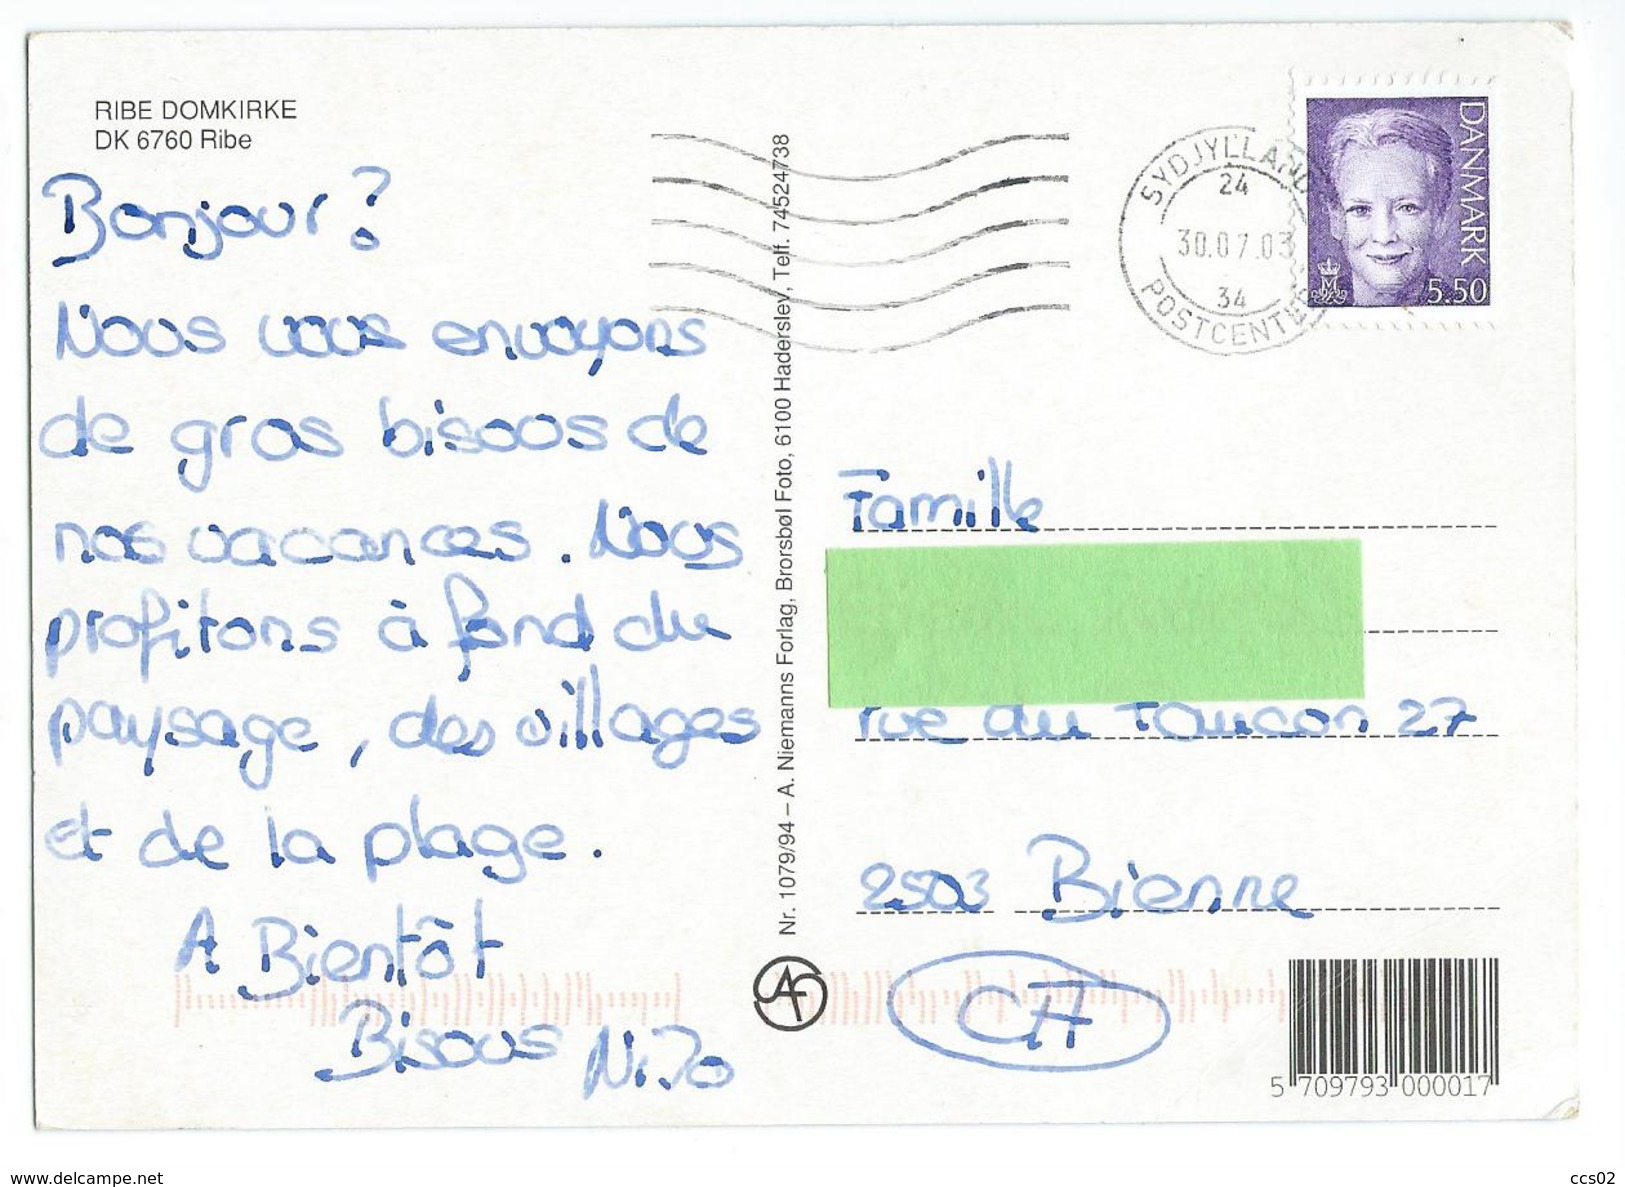 RIBE DOMKIRKE
DK 6760 Ribe
Bonjour?
Nous vous envoyons
de gros bisous de
nos vacances. Nous
profitons à fond du
paysage, des villages
et de la plage.
A Bientôt
Bisous NiJo
Nr. 1079/94 – A. Niemanns Forlag, Brorsbøl Foto, 6100 Haderslev, Telf. 74524738
SYDJYLLAND
24
30.07.03
34
POSTCENTER
DANMARK
5.50
Famille
rue du Faucon 27
2503 Bienne
CH
5 709793 000017
www.delcampe.net
ccs02